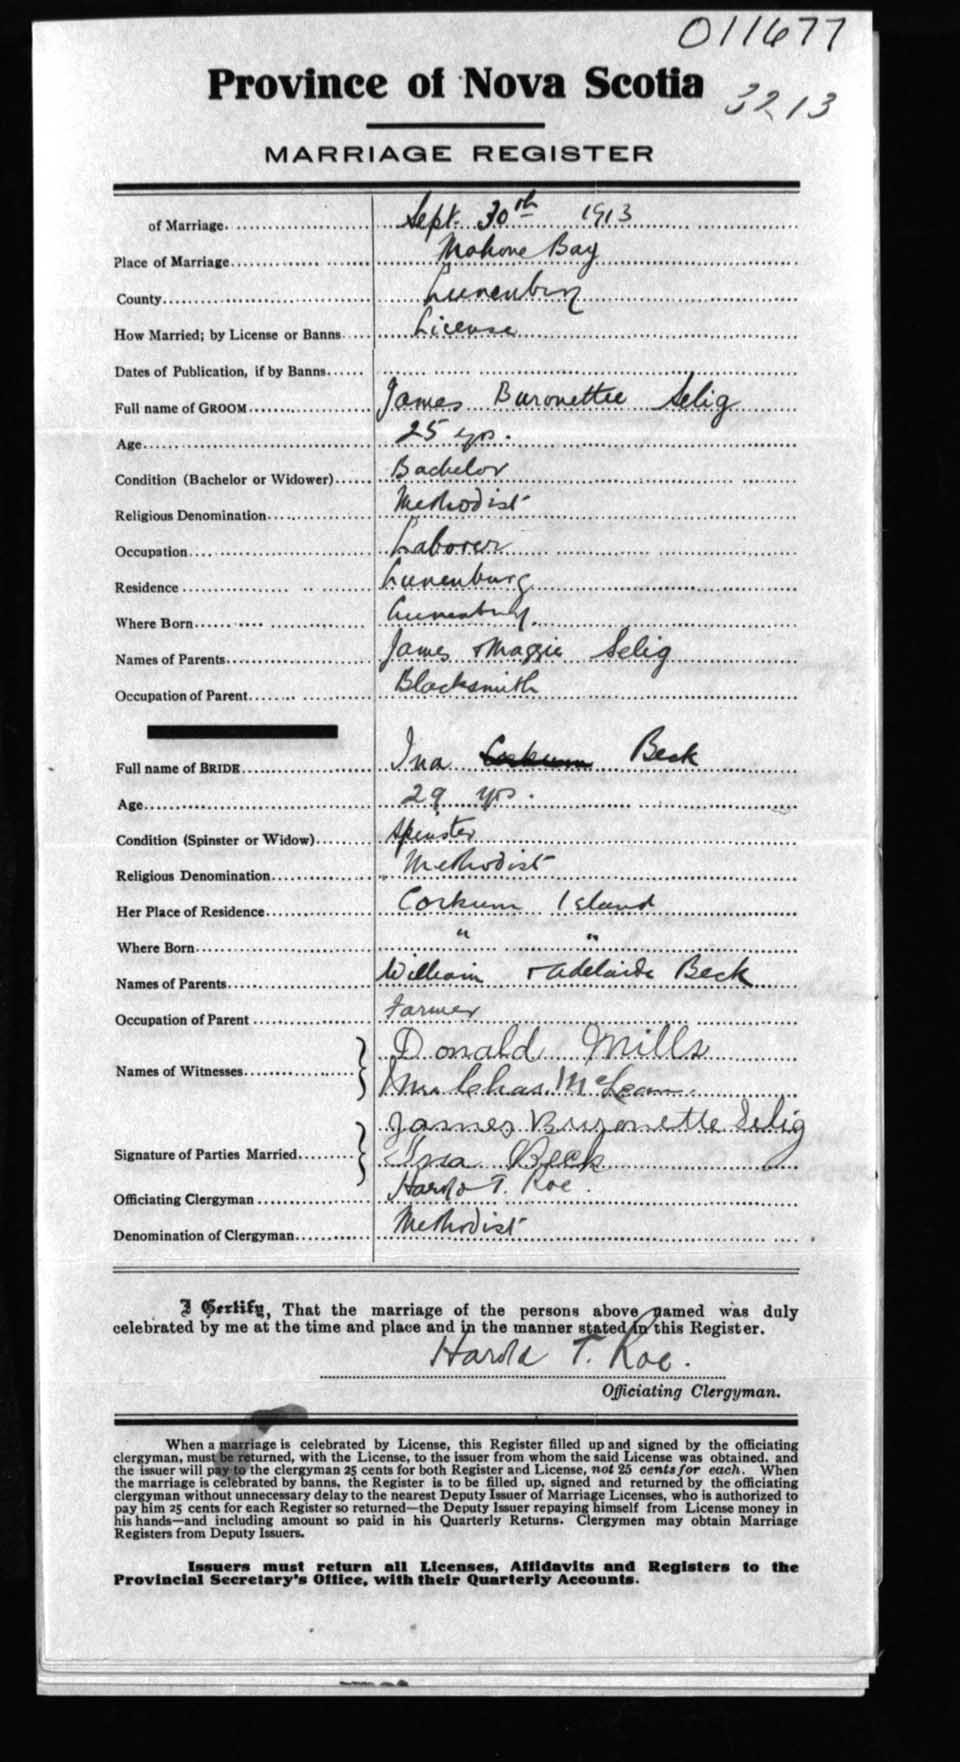 011677
Province of Nova Scotia
3213
MARRIAGE REGISTER
of Marriage Sept. 30th 1913
Place of Marriage Mahone Bay
County Lunenburg
How Married; by License or Banns License
Dates of Publication, if by Banns
Full name of GROOM James Buronettee Selig
Age 25 yrs.
Condition (Bachelor or Widower) Bachelor
Religious Denomination Methodist
Occupation Laborer
Residence Lunenburg
Where Born Lunenburg.
Names of Parents James + Maggie Selig
Occupation of Parent Blacksmith
Full name of BRIDE Ina Corkum Beck
Age 29 yrs.
Condition (Spinster or Widow) Spinster
Religious Denomination Methodist
Her Place of Residence Corkum Island
Where Born " "
Names of Parents William + Adelaide Beck
Occupation of Parent Farmer
Donald Mills
Names of Witnesses
Mrs. Chas. McLean.
James Buronette Selig
Signature of Parties Married
Ina Beck
Officiating Clergyman Harold T. Roe.
Denomination of Clergyman Methodist
I Certify, That the marriage of the persons above named was duly
celebrated by me at the time and place and in the manner stated in this Register.
Harold T. Roe.
Officiating Clergyman.
When a marriage is celebrated by License, this Register filled up and signed by the officiating
clergyman, must be returned, with the License, to the issuer from whom the said License was obtained, and
the issuer will pay to the clergyman 25 cents for both Register and License, not 25 cents for each. When
the marriage is celebrated by banns, the Register is to be filled up, signed and returned by the officiating
clergyman without unnecessary delay to the nearest Deputy Issuer of Marriage Licenses, who is authorized to
pay him 25 cents for each Register so returned—the Deputy Issuer repaying himself from License money in
his hands—and including amount so paid in his Quarterly Returns. Clergymen may obtain Marriage
Registers from Deputy Issuers.
Issuers must return all Licenses, Affidavits and Registers to the
Provincial Secretary's Office, with their Quarterly Accounts.